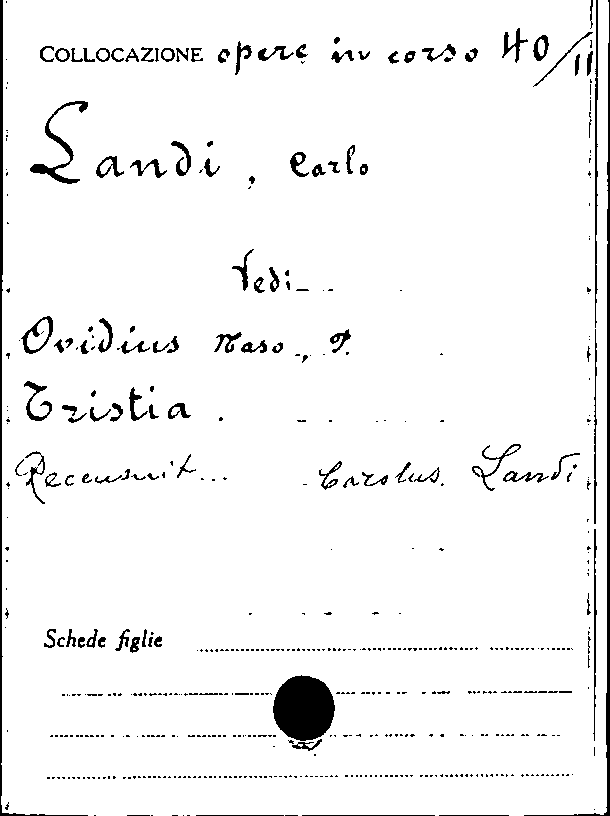 COLLOCAZIONE opere in corso 40/11
Landi, Carlo
Vedi
Ovidius Naso, P.
Tristia.
Recensuit... Carolus Landi
Schede figlie